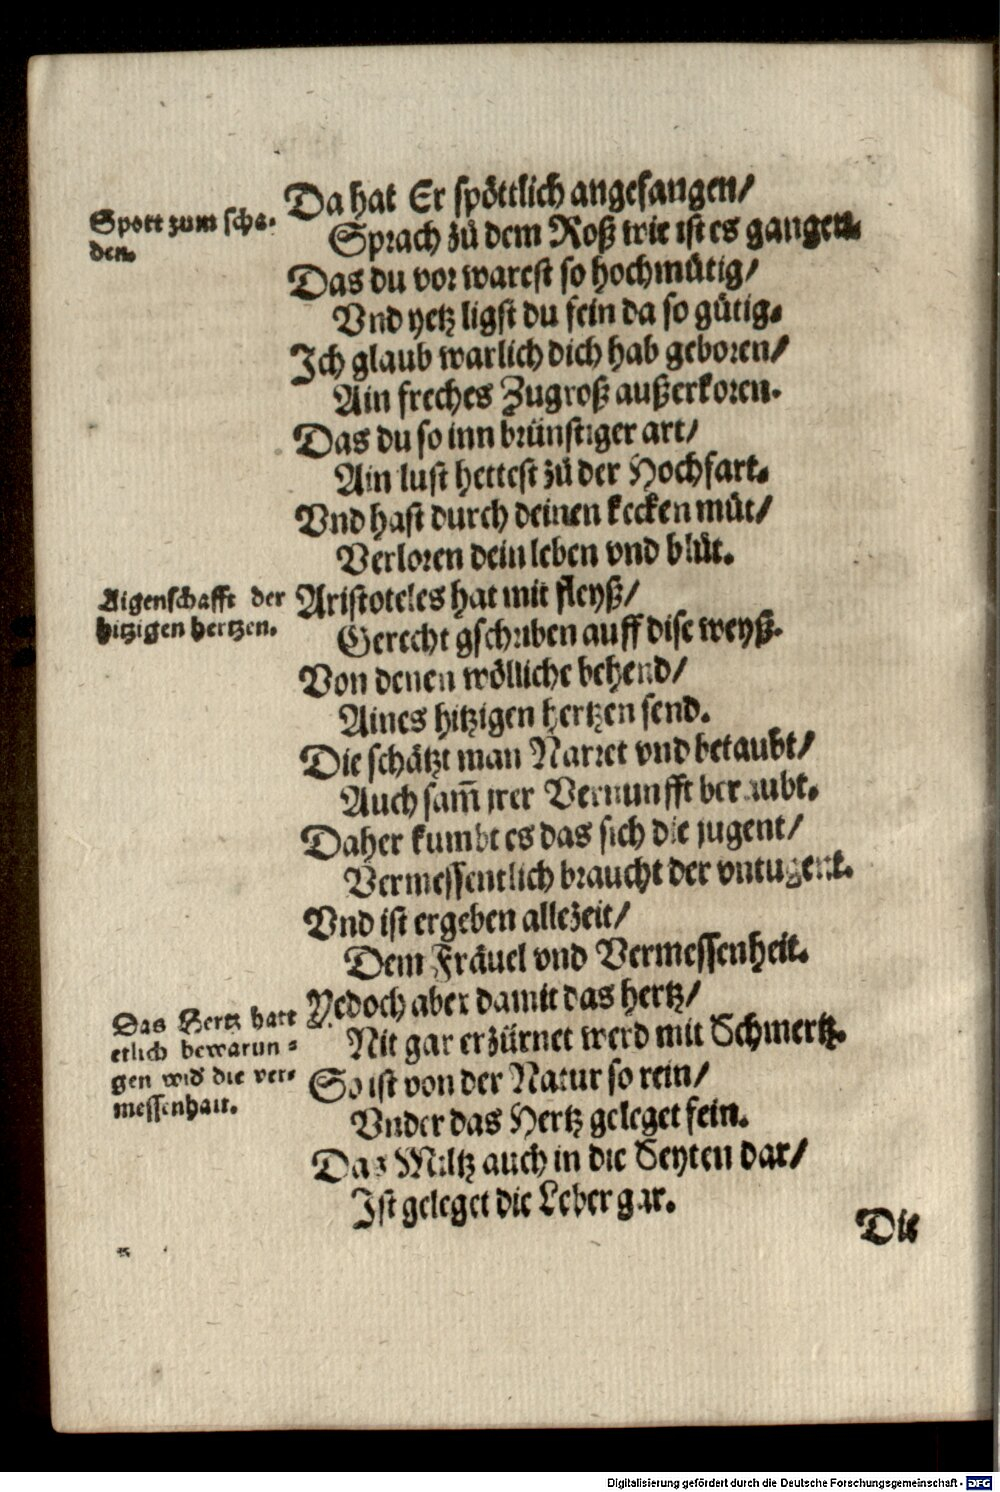 Da hat Er spöttlich angefangen/
Spott zum scha-
den.
Sprach zů dem Roß wie ist es gangen.
Das du vor warest so hochmůtig/
Vnd yetz ligst du fein da so gůtig.
Ich glaub warlich dich hab geboren/
Ain freches Zugroß außerkoren.
Das du so inn brünstiger art/
Ain lust hettest zů der Hochfart.
Vnd hast durch deinen kecken můt/
Verloren dein leben vnd blůt.
Aigenschafft der
hitzigen hertzen.
Aristoteles hat mit fleyß/
Gerecht gschriben auff dise weyß.
Von denen wölliche behend/
Aines hitzigen hertzen send.
Die schätzt man Narret vnd betaubt/
Auch sam̃ irer Vernunfft beraubt.
Daher kumbt es das sich die jugent/
Vermessentlich braucht der vntugent.
Vnd ist ergeben allezeit/
Dem Fräuel vnd Vermessenheit.
Das Hertz hatt
etlich bewarun-
gen wid die ver-
messenhait.
Yedoch aber damit das hertz/
Nit gar erzürnet werd mit Schmertz.
So ist von der Natur so rein/
Vnder das Hertz geleget fein.
Das Miltz auch in die Seyten dar/
Ist geleget die Leber gar.
Die
Digitalisierung gefördert durch die Deutsche Forschungsgemeinschaft - DFG